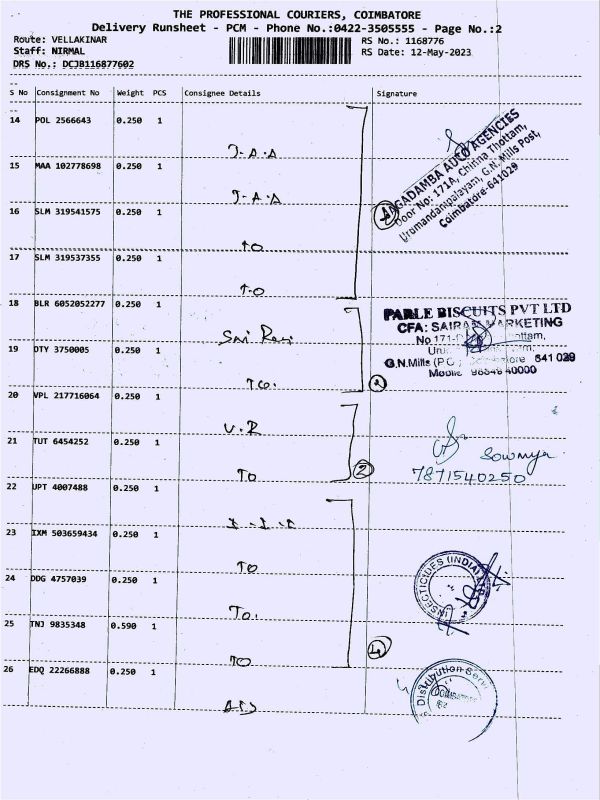 THE PROFESSIONAL COURIERS, COIMBATORE
Delivery Runsheet - PCM - Phone No.:0422-3505555 - Page No.:2
Route: VELLAKINAR RS No.: 1168776
Staff: NIRMAL RS Date: 12-May-2023
DRS No.: DCJB116877602
S No Consignment No Weight PCS Consignee Details Signature
14 POL 2566643 0.250 1
J-A-A
15 MAA 102778698 0.250 1
J-A-A
16 SLM 319541575 0.250 1
TO
17 SLM 319537355 0.250 1
TO
JAGADAMBA AUTO AGENCIES
Door No: 171A, Chinna Thottam,
Urumandampalayam, G.N. Mills Post,
Coimbatore-641029
4
18 BLR 6052052277 0.250 1
Sai
19 DTY 3750005 0.250 1
TO.
PARLE BISCUITS PVT LTD
CFA: SAIRAM MARKETING
No 171-
G.N.Mills (P.O.) Coimbatore 641 029
Mobile 40000
2
20 VPL 217716064 0.250 1
V.R
21 TUT 6454252 0.250 1
TO
2
Sowmya
7871540250
22 UPT 4007488 0.250 1
23 IXM 503659434 0.250 1
TO
24 DDG 4757039 0.250 1
TO.
25 TNJ 9835348 0.590 1
TO
4
INSECTICIDES (INDIA)
26 EDQ 22266888 0.250 1
Distribution
COIMBATORE